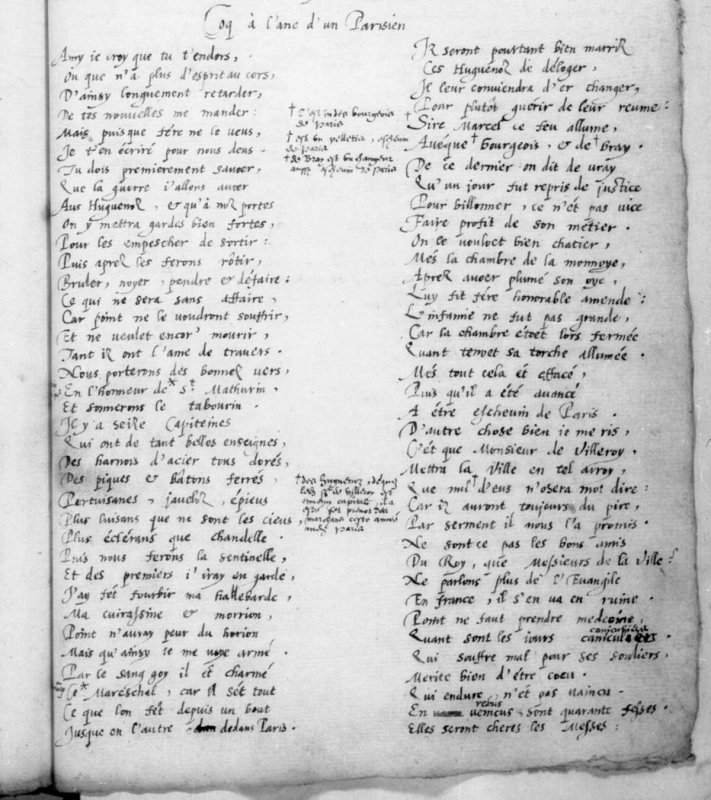 Coq à l'anc d'un Parisien
Amy ie croy que tu t'endors,
Ou que n'a plus d'esprit au cors,
D'ainsy longuement retarder,
De tes nouvelles me mander:
Mais puisque fére ne le veus,
Je t'en écriré pour nous deus.
Tu dois premierement savoer,
Que la guerre i'allons avoer
Aus Huguenoz, & qu'à noz portes
On y mettra gardes bien fortes,
Pour les empescher de sortir:
Puis aprez les ferons rôtir,
Bruler, noyer, pendre & défaire:
Ce qui ne sera sans affaire,
Car point ne le voudront souffrir,
Et ne veulet encor' mourir,
Tant iz ont l'ame de travers.
Nous porterons des bonnez vers,
En l'honneur de St. Mathurin.
Et sonnerons le tabourin.
Il y a seize Capiteines
Qui ont de tant belles enseignes,
Des harnois d'acier tous dorés,
Des piques & bâtons ferrés,
Pertuisanes, épieus
Plus luisans que ne sont les cieus,
Plus éclérans que chandelle.
Puis nous ferons la sentinelle,
Et des premiers i'iray en garde,
J'ay fét fourbir ma hallebarde,
Ma cuirassine & morrion,
Point n'auray peur du horion
Mais qu'ainsy ie me voye armé.
Par le sang goy il ét charmé
Ce Maréschal, car il sét tout
Ce que lon fét depuis un bout
Jusque en l'autre dedans Paris.
† C'est un des bourgeois
de Paris
† est un pelletier, eschevin
de Paris
† de Bray est un changeur
aussi eschevin de Paris
† des huguenoz, depuis
Villeroy
capitaine, il a
Paris
Iz seront pourtant bien marriz
Ces Huguenoz de déloger,
Il leur conviendra d'er changer,
Pour plutôt guérir de leur reume:
Sire Marcel ce feu allume,
Avéque Bourgeois, & de Bray.
De ce dernier on dit de vray
Qu'un jour fut repris de justice
Pour billonner, ce n'ét pas vice
Faire profit de son métier.
On le vouloet bien chatier,
Més la chambre de la monnoye,
Aprez avoer plumé son oye,
Luy fit fére honorable amende:
L'infamie ne fut pas grande,
Car la chambre étoet lors fermée
Quant tenoet sa torche allumée.
Més tout cela ét effacé,
Puis qu'il a été avancé
A étre eschevin de Paris.
D'autre chose bien ie me ris,
C'ét que Monsieur de Villeroy,
Mettra la Ville en tel arroy,
Que nul d'eus n'osera mot dire:
Car iz auront toujours du pire,
Par serment il nous l'a promis.
Ne sont ce pas les bons amis
Du Roy, que Messieurs de la Ville?
Ne parlons plus de l'Evangile
En france, il s'en va en ruine.
Point ne faut prendre medecine,
Quant sont les iours
Qui souffre mal pour ses souliers,
Merite bien d'étre cocu.
Qui endure, n'ét pas vaincu.
En rebus vencus sont quarante fesses.
Elles seront cheres les Messes: